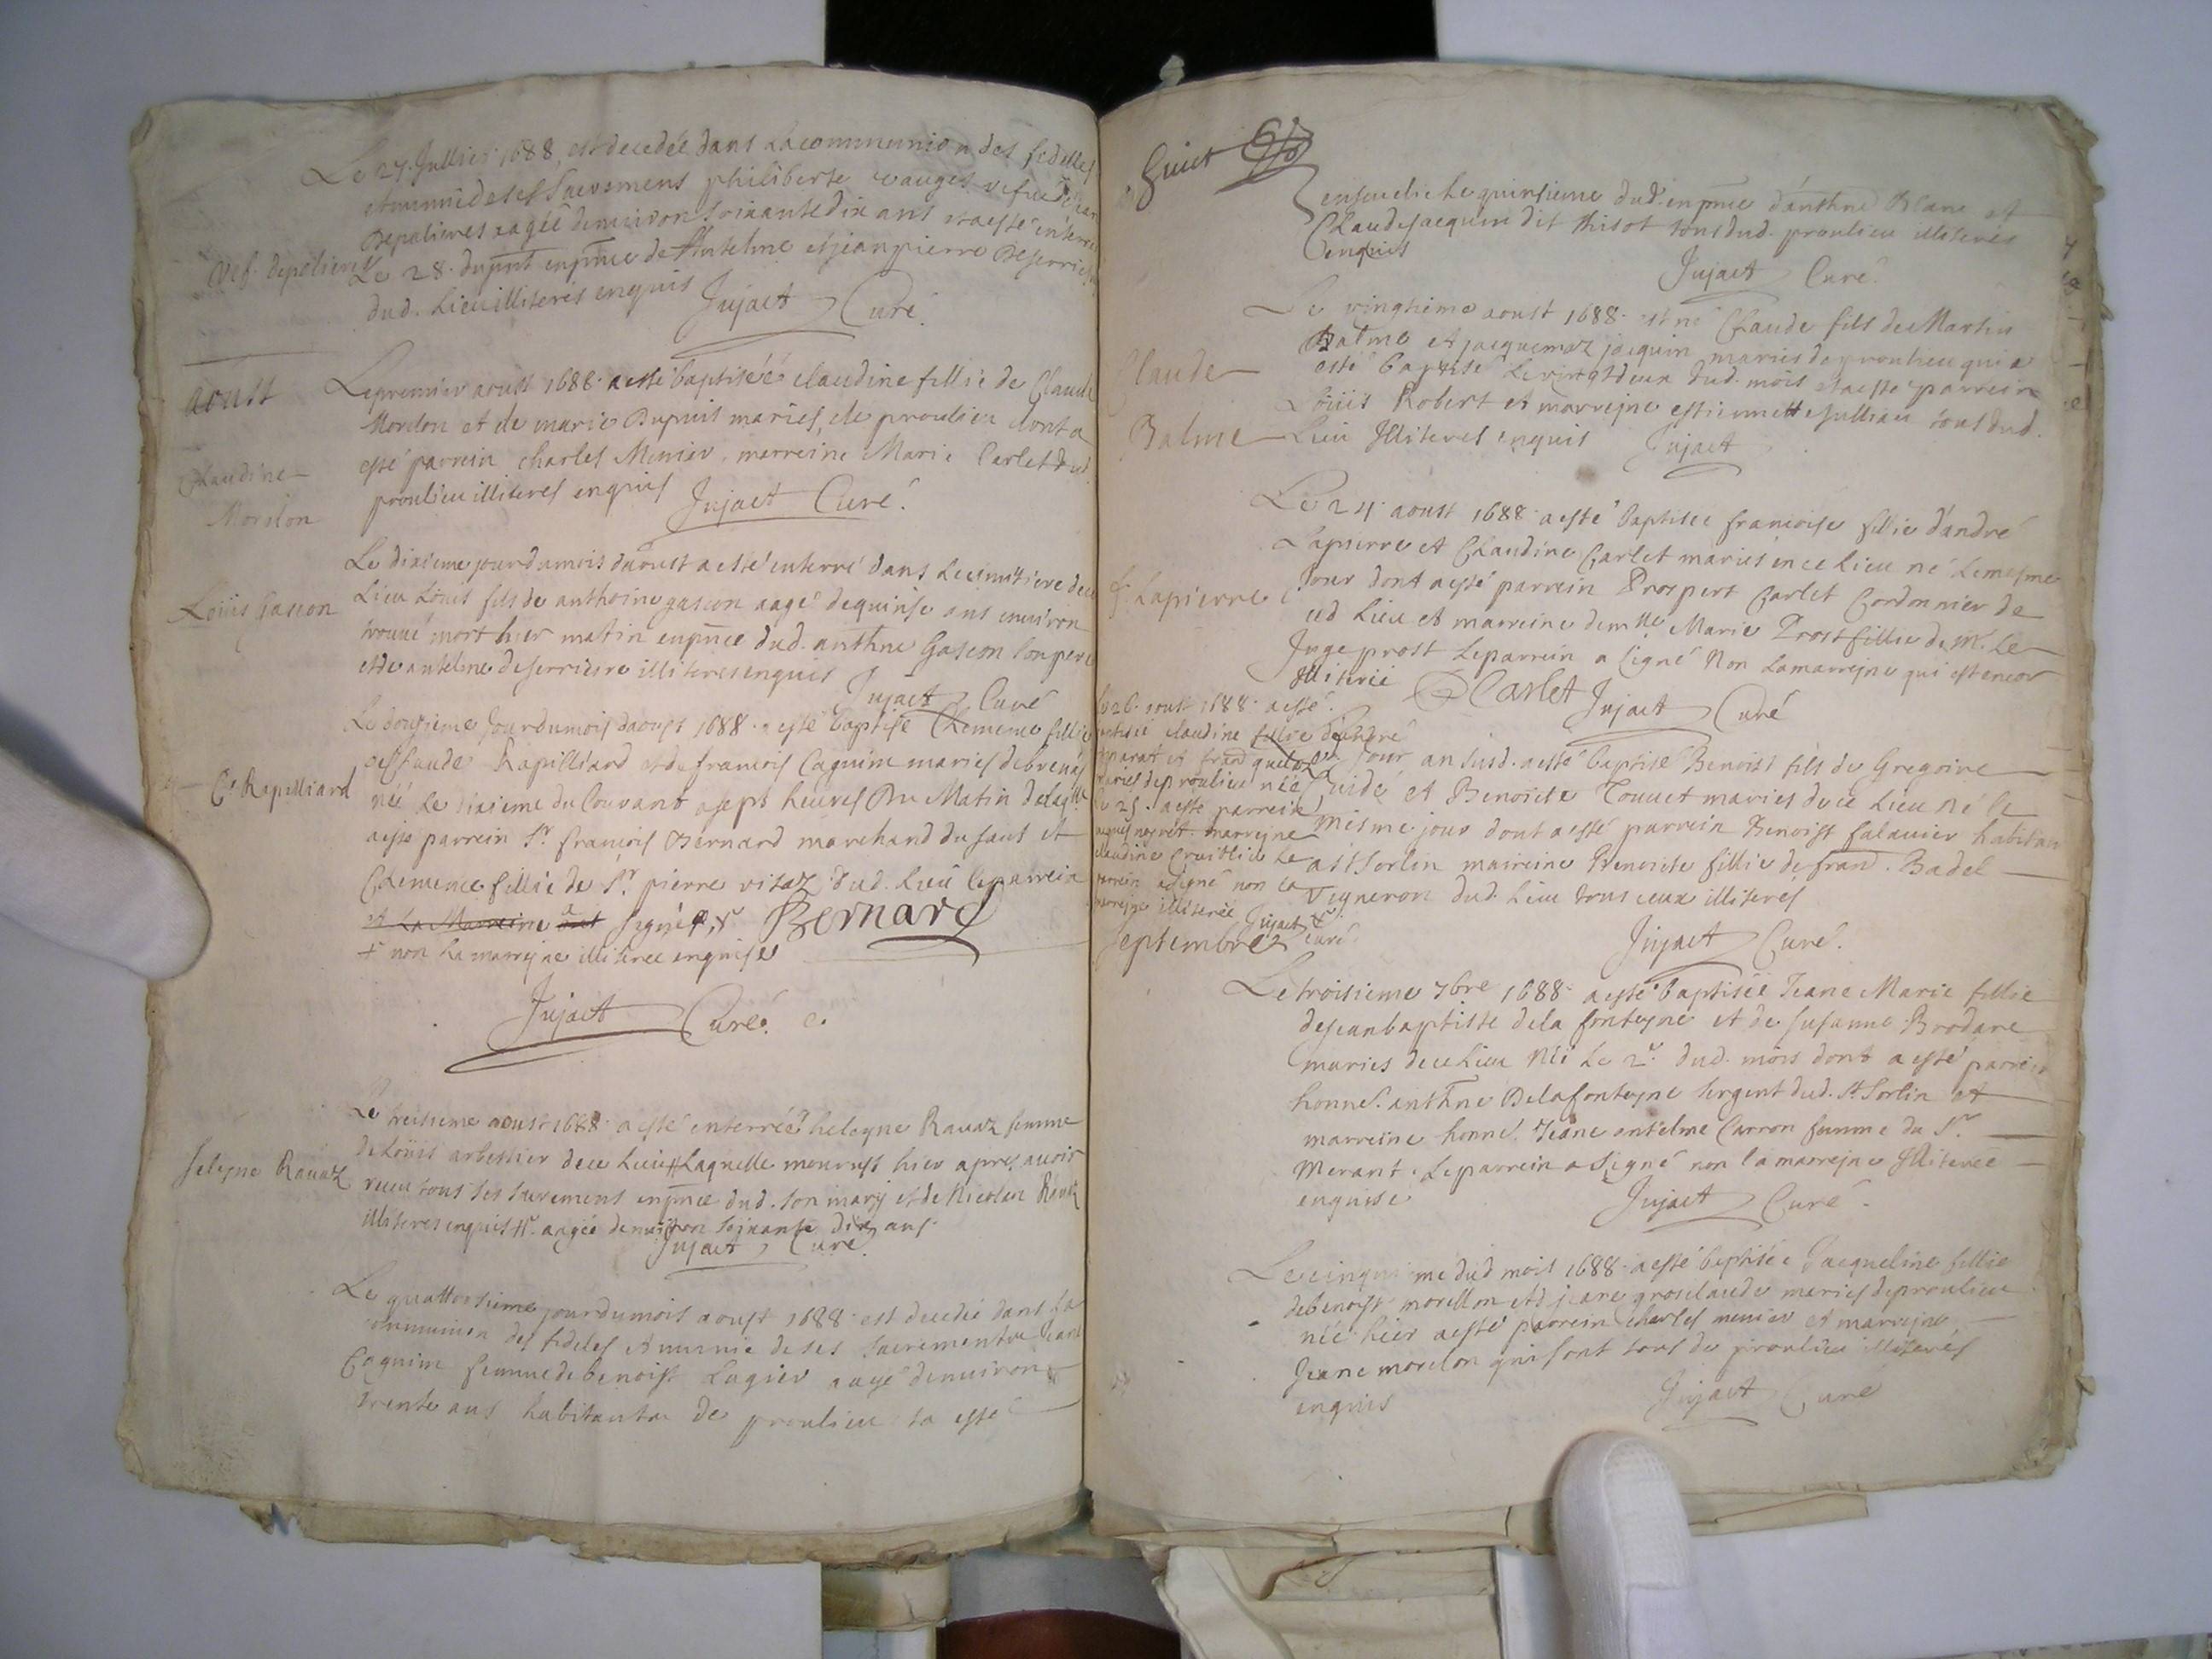 Le 27. Jullier 1688, est decedée dans la communion des fidelles
et munie de ses sacremens philiberte vauges vefue de
Depalieres aagée denuiron soixante dix ans et a esté enterré
Vef. depalieres
Le 28. dupnt enpnce de Antelme et jean pierre Deserriere
dud. Lieu illiterés enquis
Jujact Curé.
aoust
Le premier aoust 1688. a esté baptiséé claudine fillie de Claude
Morelon et de marie Dupuis mariés, de proulieu dont a
esté parrein charles Menier, marreine Marie Carlet dud.
proulieu illiterés enquis
Jujact Curé.
Claudine
Morelon
Le dixieme jour du mois daoust a esté enterré dans le cimitiere de ce
Lieu Loüis fils de anthoine gascon aagé de quinse ans enuiron
trouué mort hier matin enpnce dud. anthne Gascon son pere
et de antelme deserriere illiterés enquis
Jujact Curé
Loüis Gascon
Le dousieme Jour du mois daoust 1688. a esté baptisé Clemence fillie
de Claude Rapilliard et de francois Caguin mariés de
née le dixieme du Couvant a sept heures Du Matin delaqlle
a este parrein Sr. francois Bernard marchand du saut et
Clemence fillie de Sr. pierre vitoz dud. Lieu le parrein
et La Marreine ont signé Bernard
+ non la marrejne illiterée enquise
Jujact Curé.
C. Rapilliard
Le treisieme aoust 1688. a esté enterréé heleyne Rauaz femme
de Loüis arbestier de ce Lieu Laquelle mourust hier apres auoir
receu tous ses sacremens enpnce dud. son mary et de Nicolas Rauaz
illiterés enquis. aagée denuiron soixante dix ans.
Jujact Curé.
heleyne Rauaz
Le quattorsieme jour du mois aoust 1688. est decedée dans la
communion des fideles et munie de ses sacrements Jeane
Caguin femme de benoist Lagier aagé denuiron
trente ans habitante de proulieu et a esté
Guiet
enseuelie le quinsieme dud. enpnce d'anthne Blanc et
Claude jacquin dit Thisot tous dud. proulieu illiterés
enquis
Jujact Curé.
Le vingtieme aoust 1688. est né Claude fils de Martin
Balme et jacquemaz jacquin mariés de proulieu qui a
esté baptisé le vingtdeux dud. mois et a este parrein
Loüis Robert et marrejne estiennette Jullian tous dud.
Lieu Illiterés enquis
Jujact
Claude
Balme
Le 24. aoust 1688. a esté baptisée francoise fillie d'andré
Lapierre et Claudine Carlet mariés en ce lieu né le mesme
jour dont a esté parrein Prospert Carlet Cordonnier de
ced Lieu et marreine demlle Marie Prost fillie de Mr. Le
Juge prost Le parrein a signé Non la marrejne qui est encor
Illiterée Carlet Jujact Curé
f. Lapierre
le 26. aoust 1688. a esté
baptisé claudine fillie d'andré
mariés de proulieu née
le 25. a esté parrein
marrejne
claudine Le
parrein a signé non la
marrejne illiterée Jujact
curé.
Jour an susd. a esté baptisé Benoist fils de Gregoire
Guidé et Benoicte Touuet mariés de ce Lieu né le
mesme jour dont a esté parrein Benoist falauier habitan
a St Sorlin marreine Benoicte fillie de fran. Badel
Vigneron dud. Lieu tous ceux illiterés
Jujact Curé.
Septembre
Le troisieme 7bre 1688. a esté baptisée Jeane Marie fillie
de jean baptiste de la fonteyne et de susanne Brodare
mariés de ce Lieu Née Le 2e. dud. mois dont a esté parrein
honnel. anthne Delafonteyne sergent dud. St Sorlin et
marreine honnel. Jeane antelme Carron femme du Sr.
Merant. Le parrein a signé non la marrejne Illiterée
enquise
Jujact Curé.
Le cinquieme dud mois 1688. a esté baptisée Jacqueline fillie
de benoist morellon et de jeane grosclaude mariés de proulieu
née hier a esté parrein charles menier et marrejne
Jeane morelon qui sont tous de proulieu illiterés
enquis
Jujact Curé